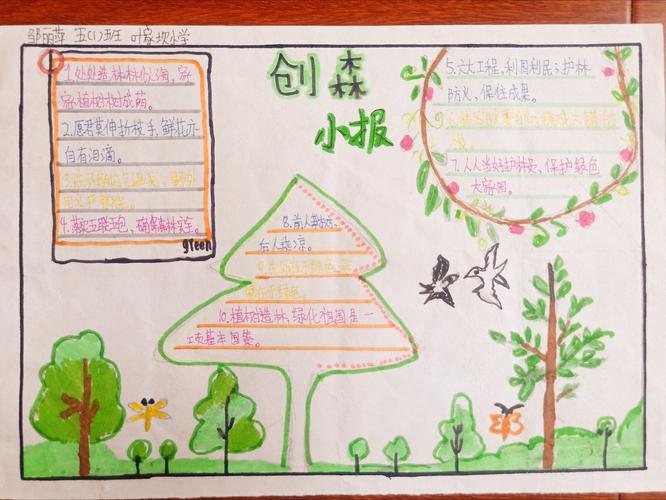 邹丽萍 五(1)班 叶家坎小学
创森
小报
1.处处造林林似海,家
家植树树成荫。
2.愿君莫伸折枝手,鲜花亦
自有泪滴。
4.落实五联五包,确保森林安全。
green
5.六大工程,利国利民;护林
防火,保住成果。
7.人人当好护林员,保护绿色
大家园。
8.前人栽树,
后人乘凉。
10.植树造林,绿化祖国是一
项基本国策。